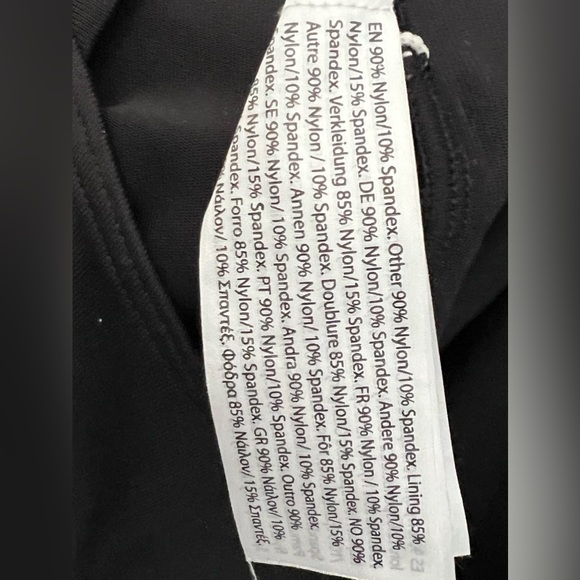 EN 90% Nylon/10% Spandex. Other 90% Nylon/10% Spandex. Lining 85%
Nylon/15% Spandex. DE 90% Nylon/10% Spandex. Andere 90% Nylon/10%
Spandex. Verkleidung 85% Nylon/15% Spandex. FR 90% Nylon / 10% Spandex.
Autre 90% Nylon / 10% Spandex. Doublure 85% Nylon/15% Spandex. NO 90%
Nylon/10% Spandex. Annen 90% Nylon/ 10% Spandex. Fôr 85% Nylon/15%
Spandex. SE 90% Nylon/ 10% Spandex. Andra 90% Nylon/ 10% Spandex.
85% Nylon/15% Spandex. PT 90% Nylon/10% Spandex. Outro 90%
Spandex. Forro 85% Nylon/15% Spandex. GR 90% Νάιλον/ 10%
Νάιλον/ 10% Σπαντέξ. Φόδρα 85% Νάιλον/ 15% Σπαντέξ.